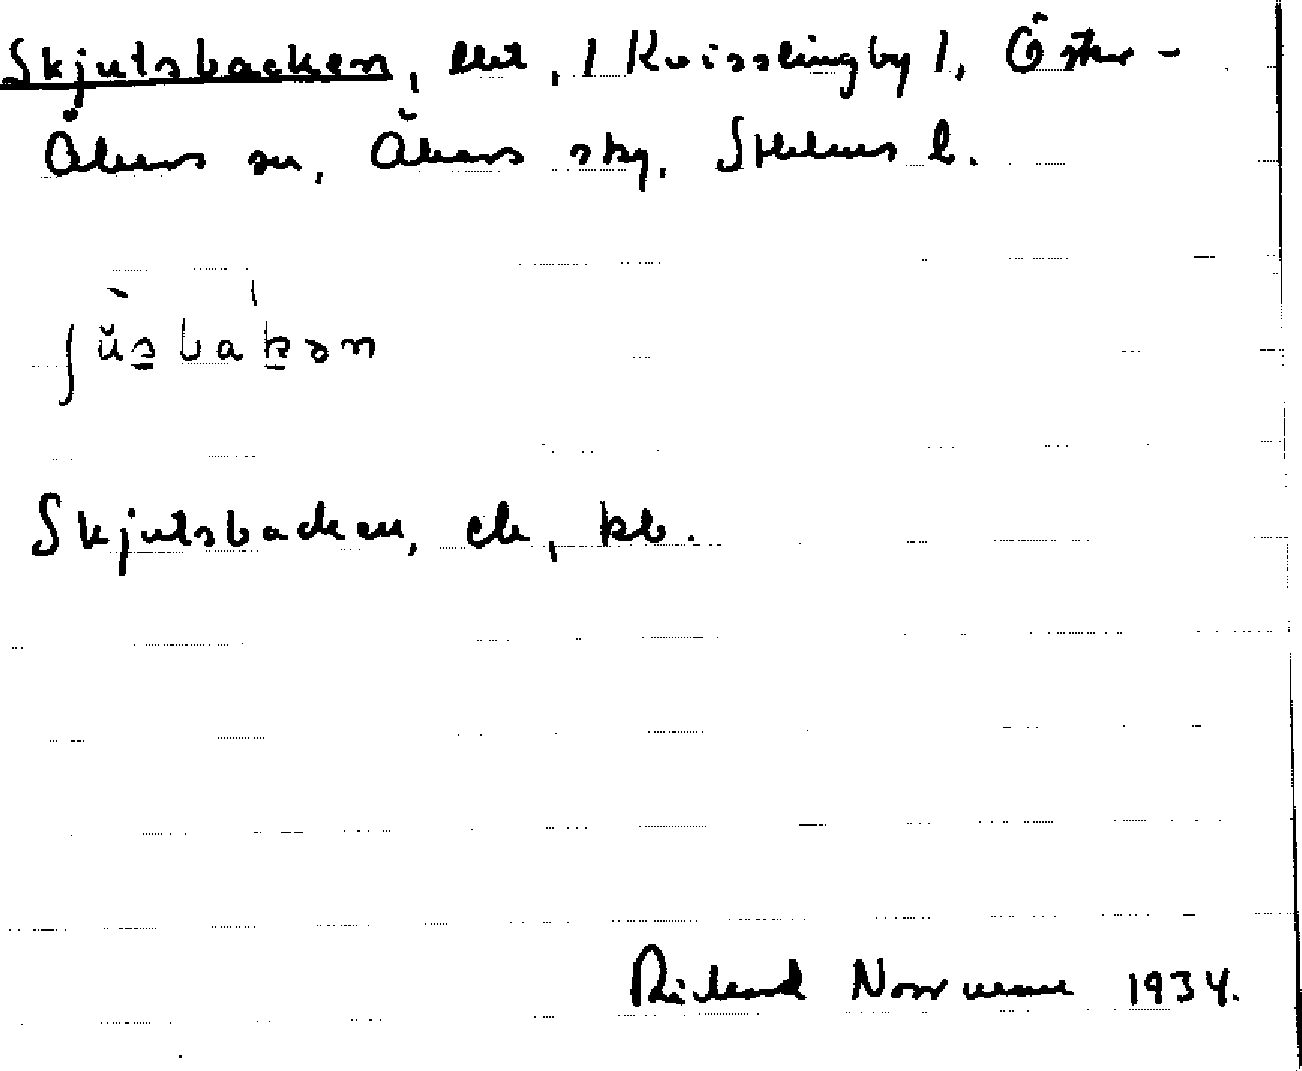 Skjutsbacken, lht, / Kvisslingby /, Öster-
Åkers sn, Åkers sky, Sthlms l.
ʃŭs̱bak̠ən
Skjutsbacken, ek, kb.
Rickard Norrman 1934.